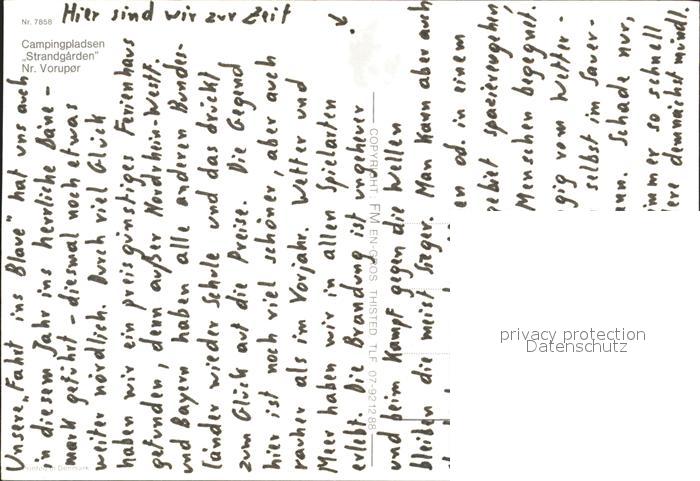 Nr. 7858
Hier sind wir zur Zeit
Campingpladsen
„Strandgården"
Nr. Vorupør
Unsere „Fahrt ins Blaue" hat uns auch
in diesem Jahr ins herrliche Däne-
mark geführt - diesmal noch etwas
weiter nördlich. Durch viel Glück
haben wir ein preisgünstiges Ferienhaus
gefunden, denn außer Nordrhein-Westf.
und Bayern haben alle anderen Bundes-
länder wieder Schule und das drückt
zum Glück auf die Preise. Die Gegend
hier ist noch viel schöner, aber auch
rauher als im Vorjahr. Wetter und
Meer haben wir in allen Spielarten
erlebt. Die Brandung ist ungeheuer
und beim Kampf gegen die Wellen
bleiben die meist Sieger. Man kann aber auch
en od. in einem
gebiet spazierengehen,
Menschen begegnet.
gig vom Wetter-
selbst im Sauer-
nn. Schade nur,
immer so schnell
ere demnächst mündl.
COPYRIGHT: FM EN-GROS THISTED TLF 07-921288
Printed in Denmark
privacy protection
Datenschutz